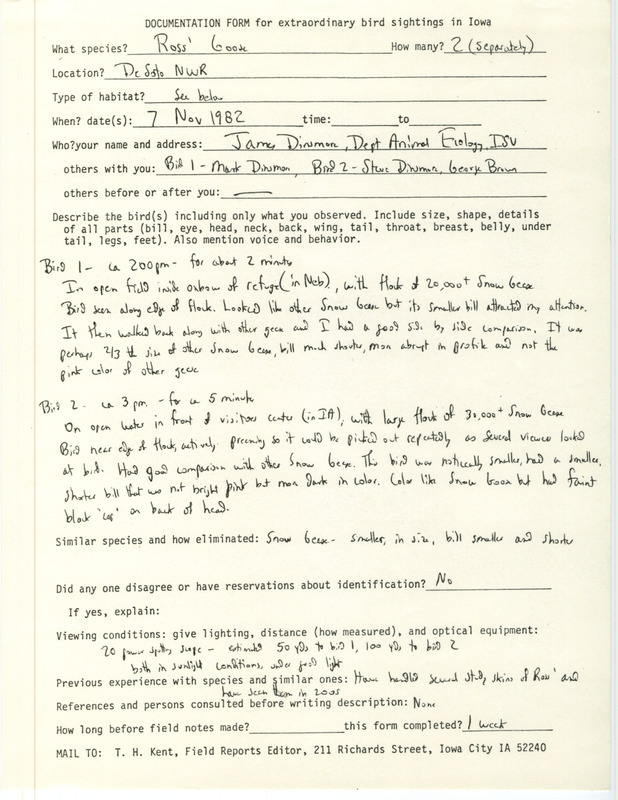 DOCUMENTATION FORM for extraordinary bird sightings in Iowa
What species? Ross' Goose How many? 2 (separately)
Location? DeSoto NWR
Type of habitat? See below
When? date(s): 7 Nov 1982 time: to
Who?your name and address: James Dinsmore, Dept Animal Ecology, ISU
others with you: Bird 1 - Mark Dinsmore, Bird 2 - Steve Dinsmore, George Brown
others before or after you:
Describe the bird(s) including only what you observed. Include size, shape, details
of all parts (bill, eye, head, neck, back, wing, tail, throat, breast, belly, under
tail, legs, feet). Also mention voice and behavior.
Bird 1 - ca 200 pm - for about 2 minutes
In open field inside oxbow of refuge (in Neb), with flock of 20,000+ Snow Geese
Bird seen along edge of flock. Looked like other Snow Geese but its smaller bill attracted my attention.
It then walked back along with other geese and I had a good side by side comparison. It was
perhaps 2/3 the size of other Snow Geese, bill much shorter, more abrupt in profile and not the
pink color of other geese
Bird 2 - ca 3 pm - for ca 5 minutes
On open water in front of visitors center (in IA), with large flock of 30,000+ Snow Geese
Bird near edge of flock, actively preening so it could be picked out repeatedly as several viewers looked
at bird. Had good comparison with other Snow Geese. This bird was noticeably smaller, had a smaller,
shorter bill that was not bright pink but more dark in color. Color like Snow Goose but had faint
black 'cap' on back of head.
Similar species and how eliminated: Snow Geese - smaller, in size, bill smaller and shorter
Did any one disagree or have reservations about identification? No
If yes, explain:
Viewing conditions: give lighting, distance (how measured), and optical equipment:
20 power spotting scope - estimated 50 yds to bird 1, 100 yds to bird 2
both in sunlight conditions, under good light
Previous experience with species and similar ones: Have handled several study skins of Ross' and
have seen them in zoos
References and persons consulted before writing description: None
How long before field notes made? this form completed? 1 week
MAIL TO: T. H. Kent, Field Reports Editor, 211 Richards Street, Iowa City IA 52240